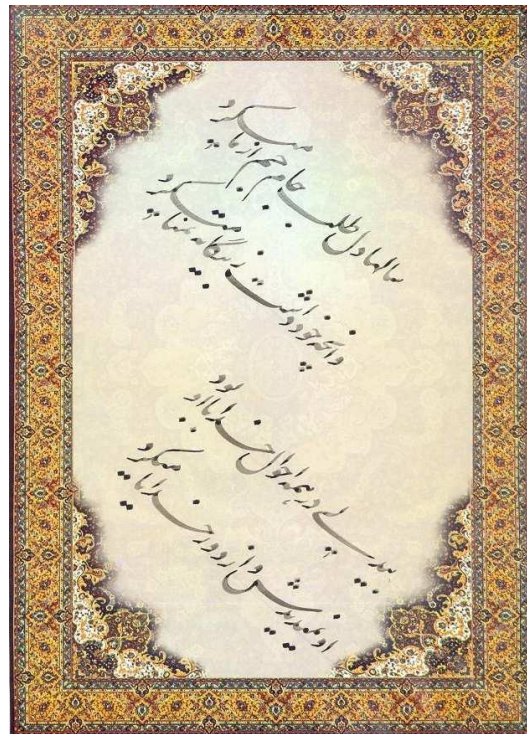 سالها دل طلب جام جم از ما میکرد
وانچه خود داشت ز بیگانه تمنا میکرد
بیدلی در همه احوال خدا با او بود
او نمیدیدش و از دور خدایا میکرد